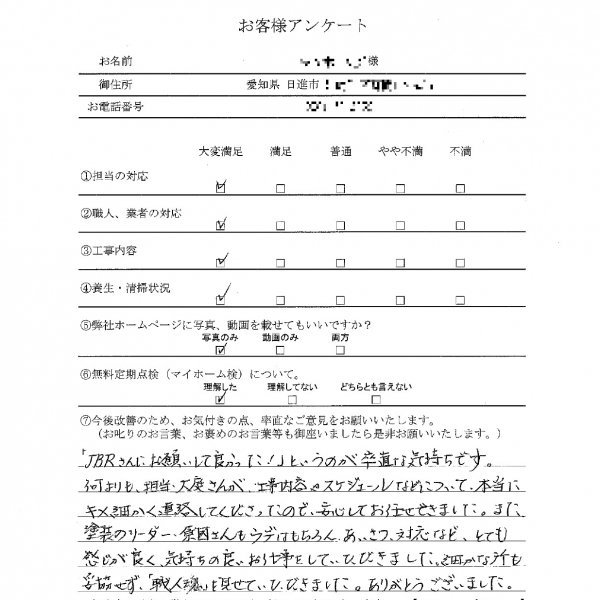 お客様アンケート
お名前 様
御住所 愛知県 日進市
お電話番号
大変満足 満足 普通 やや不満 不満
①担当の対応
②職人、業者の対応
③工事内容
④養生・清掃状況
⑤弊社ホームページに写真、動画を載せてもいいですか?
写真のみ 動画のみ 両方
⑥無料定期点検(マイホーム検)について。
理解した 理解してない どちらとも言えない
⑦今後改善のため、お気付きの点、率直なご意見をお願いいたします。
(お叱りのお言葉、お褒めのお言葉等も御座いましたら是非お願いいたします。)
「JBRさんにお願いして良かった!」というのが率直な気持ちです。
何よりも、担当・大庭さんが、工事内容やスケジュールなどについて、本当に
キメ細かく連絡してくださったので、安心してお任せできました。また、
塗装のリーダー・原因さんもウデはもちろん、あいさつ、対応など、とても
感じが良く、気持ちの良いお仕事をしていただきました。細かな所も
妥協せず、「職人魂」を見せていただきました。ありがとうございました。